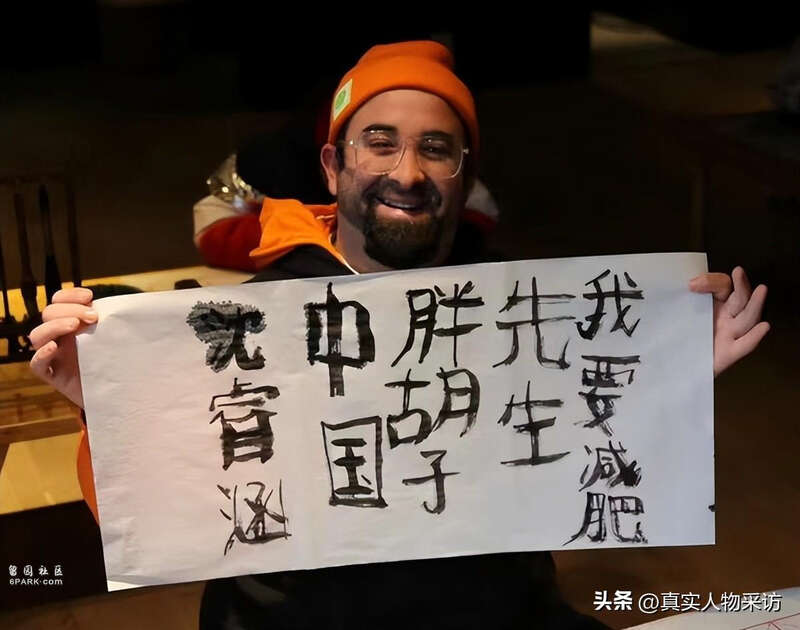 我要减肥
先生
胖胡子
中国
沈睿涵
留园社区
6PARK.com
头条 @真实人物采访